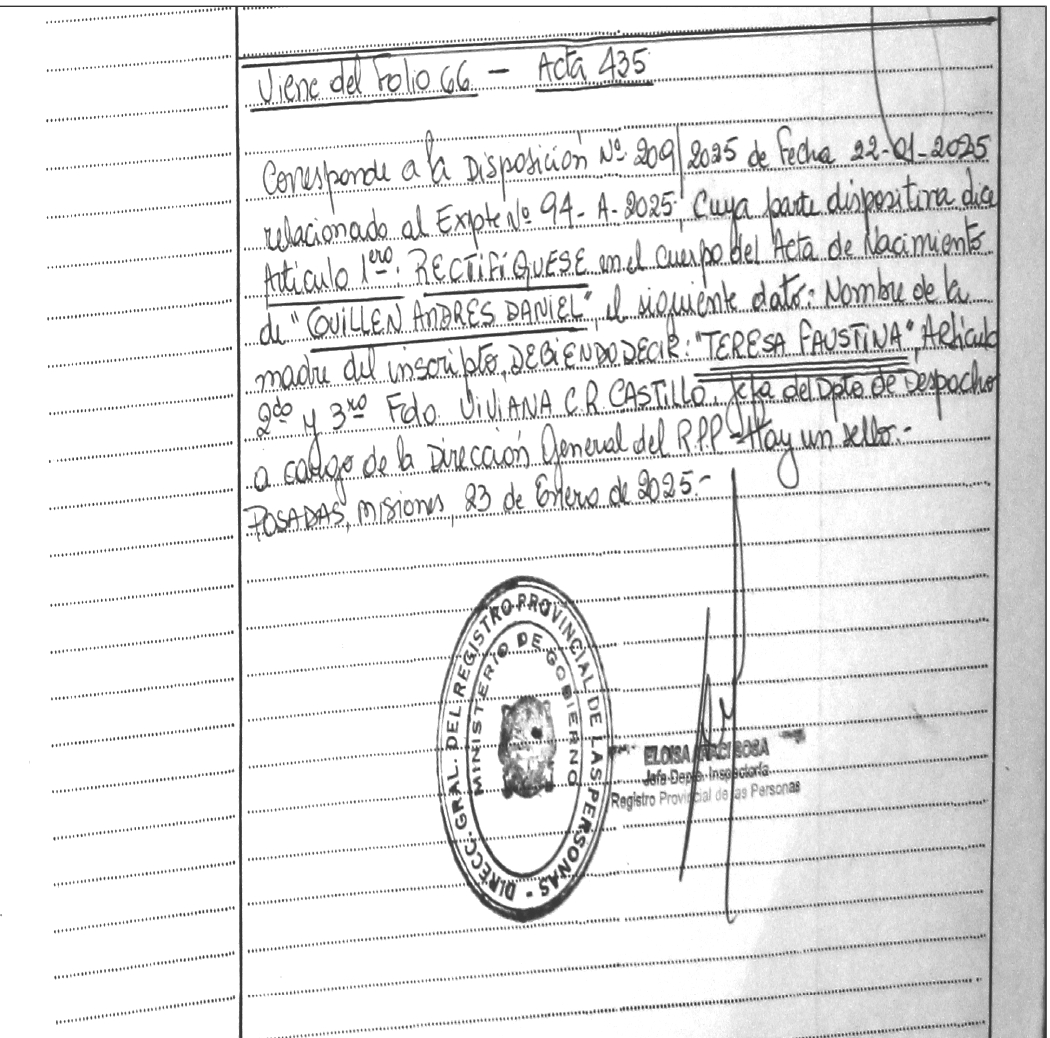 Viene del Folio 66 - Acta 435
Corresponde a la Disposición Nº 209/2025 de fecha 22-01-2025
relacionado al Expte Nº 94-A-2025, Cuya parte dispositiva dice
Artículo 1ero: RECTIFÍQUESE en el cuerpo del Acta de Nacimiento
de "GUILLEN ANDRES DANIEL", el siguiente dato: Nombre de la
madre del inscripto, DEBIENDO DECIR: "TERESA FAUSTINA", Artículo
2do y 3ro Fdo. VIVIANA C.R. CASTILLO, Jefa del Dpto de Despacho
a cargo de la Dirección General del R.P.P - Hay un sello.-
POSADAS, Misiones, 23 de Enero de 2025.-
DIRECC. GRAL. DEL REGISTRO PROVINCIAL DE LAS PERSONAS -
MINISTERIO DE GOBIERNO
ELOISA SOSA
Jefa Depto. Inspectoría
Registro Provincial de las Personas